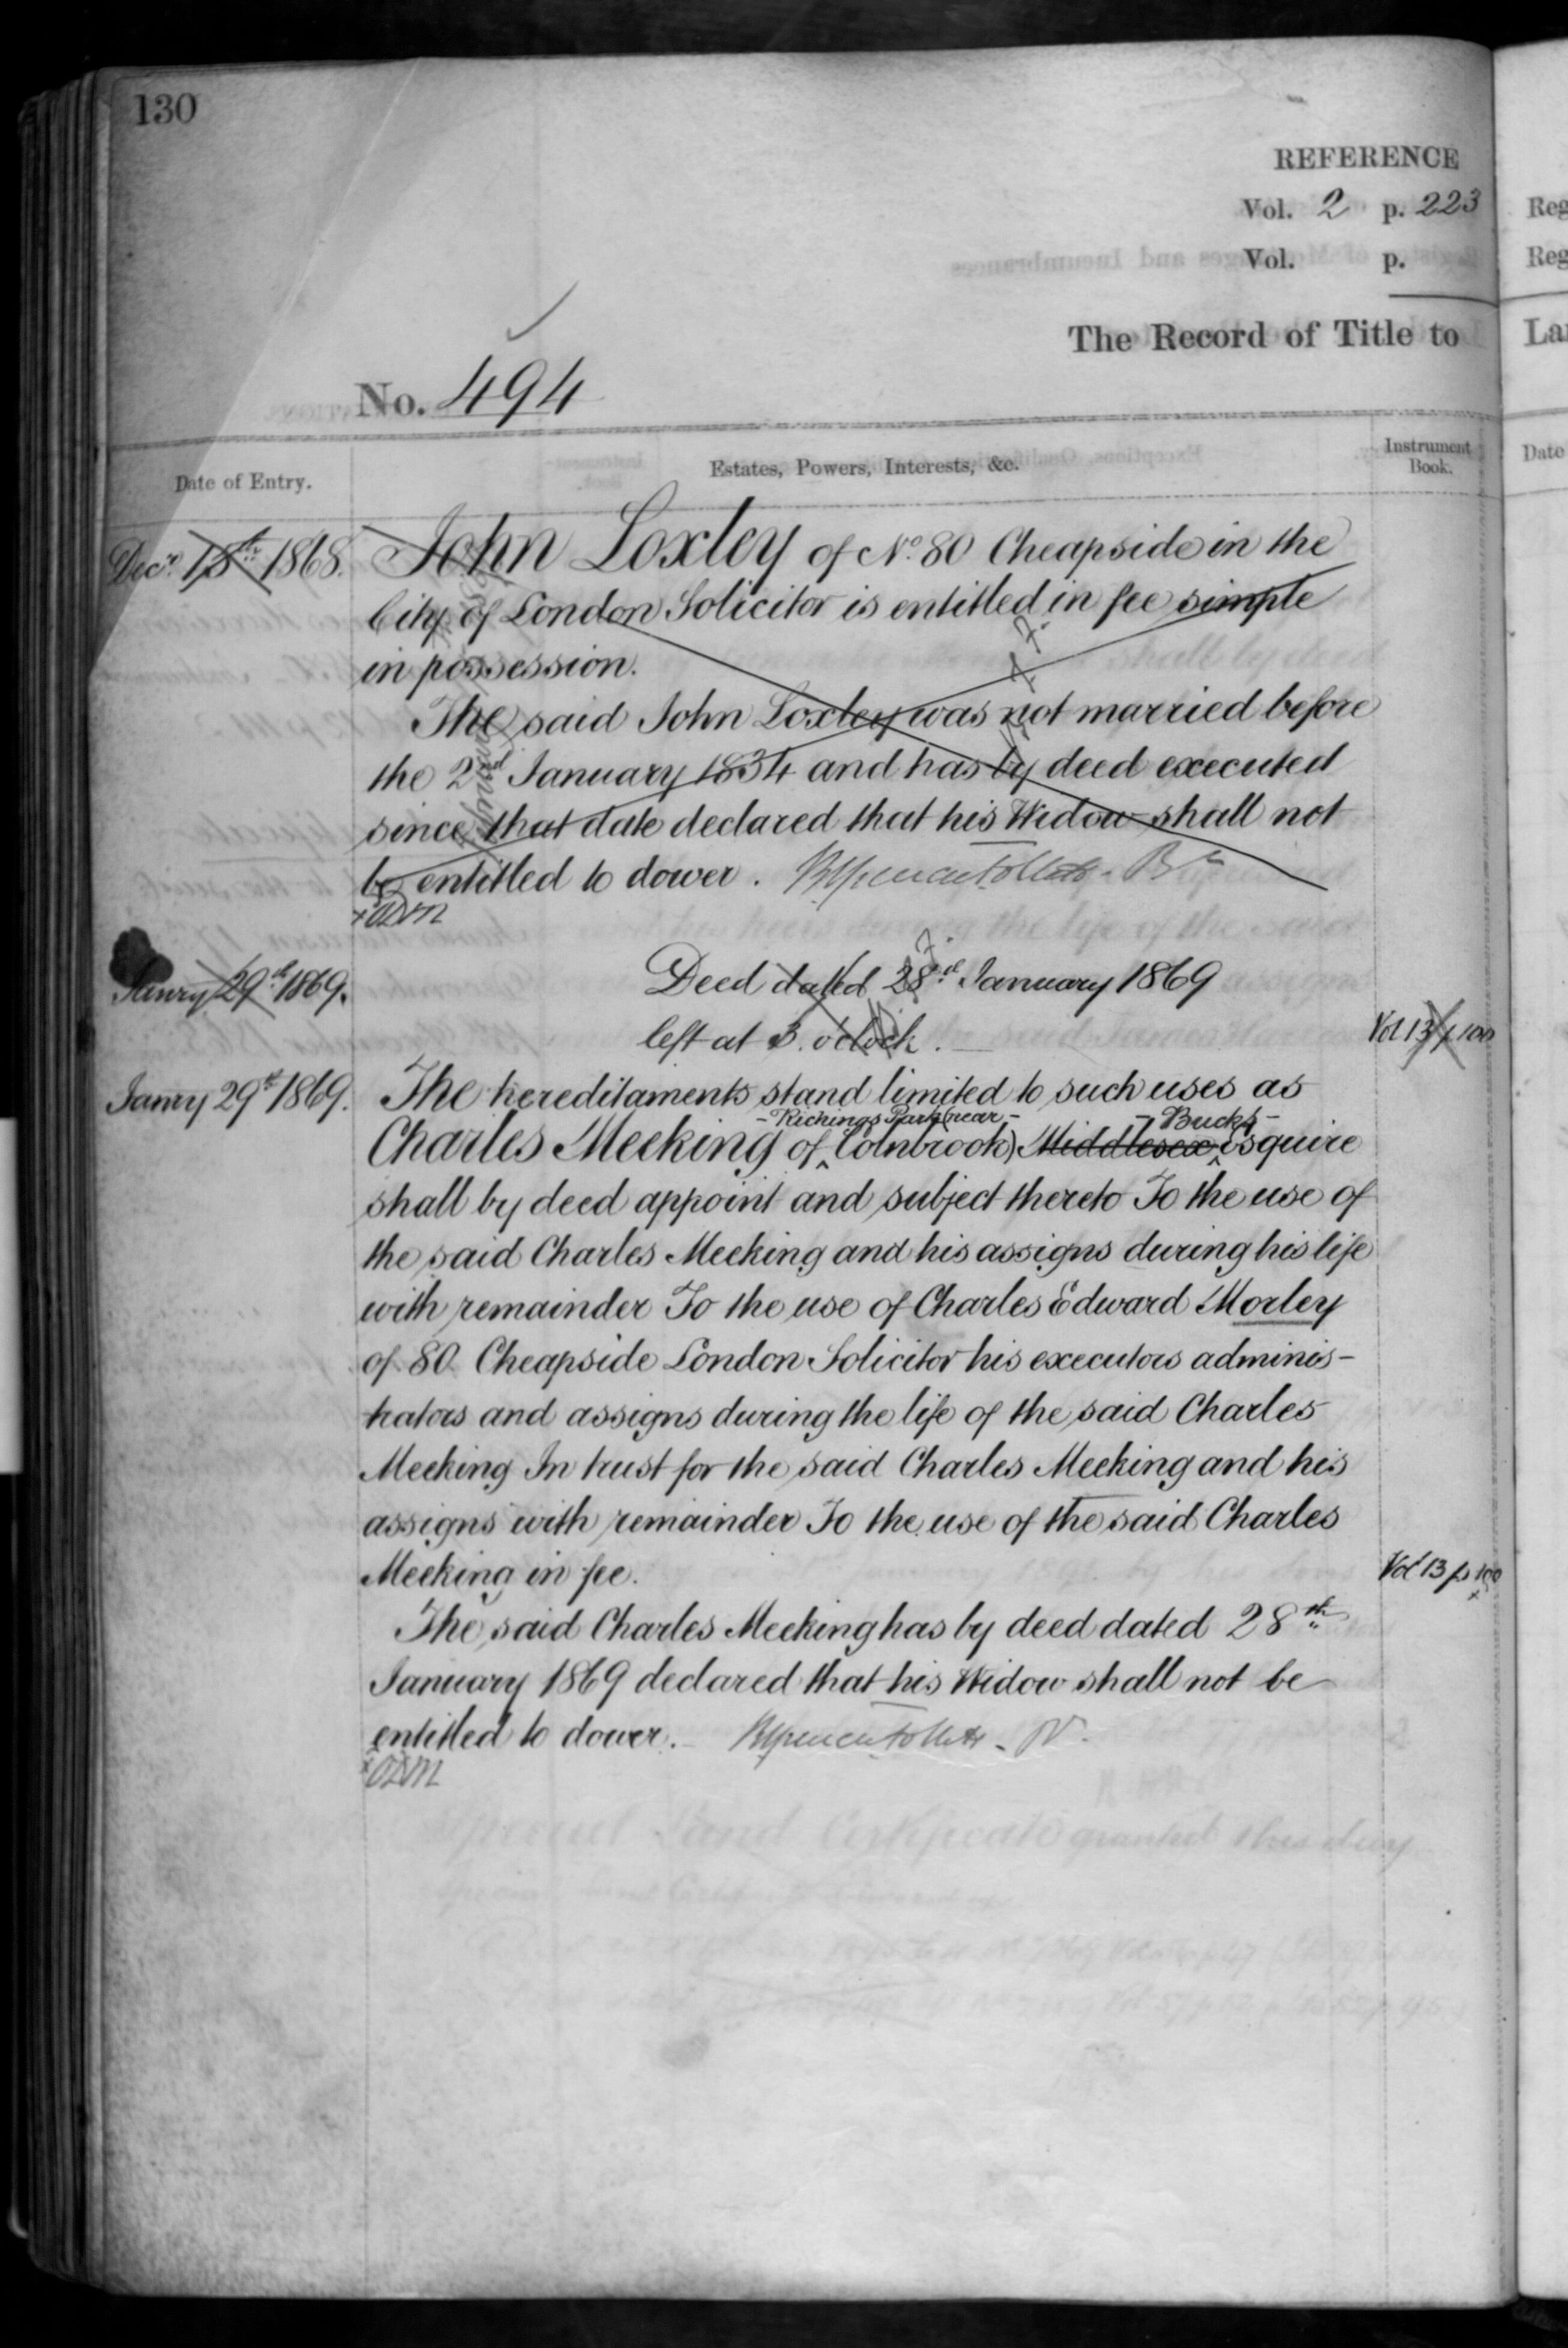 130
REFERENCE
Vol. 2 p. 223
Vol. p.
The Record of Title to
No. 494
Date of Entry.
Estates, Powers, Interests, &c.
Instrument Book.
Decr. 18th 1868.
John Loxley of No. 80 Cheapside in the
City of London Solicitor is entitled in fee simple
in possession.
The said John Loxley was not married before
the 2nd January 1834 and has by deed executed
since that date declared that his Widow shall not
be entitled to dower.
Janry 29th 1869.
Deed dated 28th January 1869
left at 3. o'clock.
Vol 13 p 100
Janry 29th 1869.
The hereditaments stand limited to such uses as
- Richings Park (near - - Bucks -
Charles Meeking of Colnbrook) Middlesex Esquire
shall by deed appoint and subject thereto To the use of
the said Charles Meeking and his assigns during his life
with remainder To the use of Charles Edward Morley
of 80 Cheapside London Solicitor his executors adminis-
trators and assigns during the life of the said Charles
Meeking In trust for the said Charles Meeking and his
assigns with remainder To the use of the said Charles
Meeking in fee.
Vol 13 p 100
The said Charles Meeking has by deed dated 28th
January 1869 declared that his Widow shall not be
entitled to dower.
Reg
Reg
Date